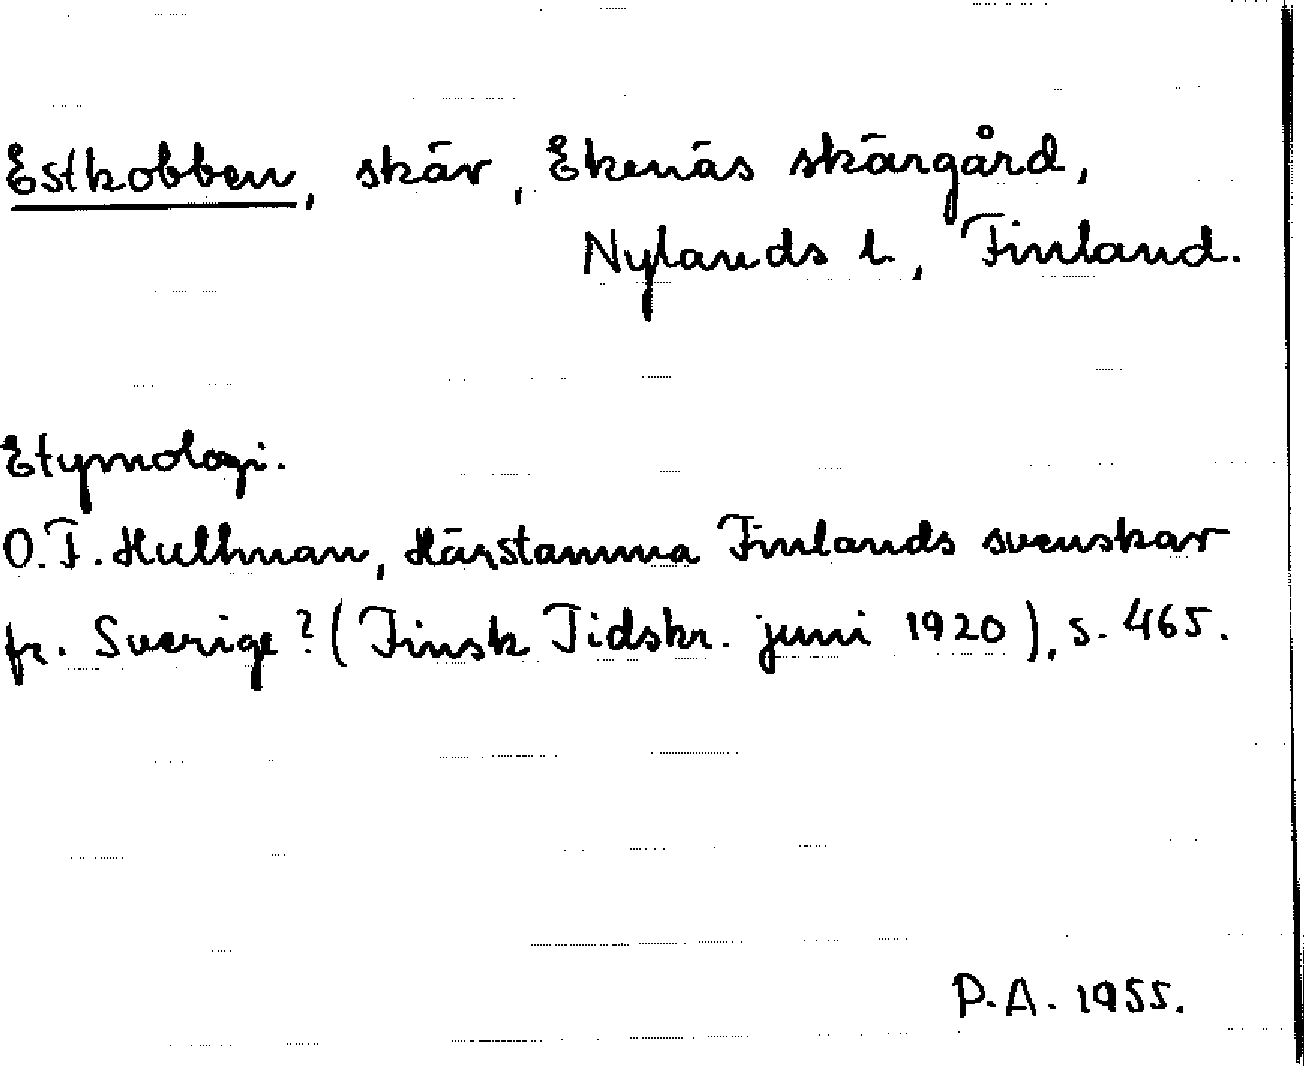 Estkobben, skär, Ekenäs skärgård,
Nylands l., Finland.
Etymologi.
O.F. Hultman, Härstamma Finlands svenskar
fr. Sverige? (Finsk Tidskr. juni 1920), s. 465.
P.A. 1955.